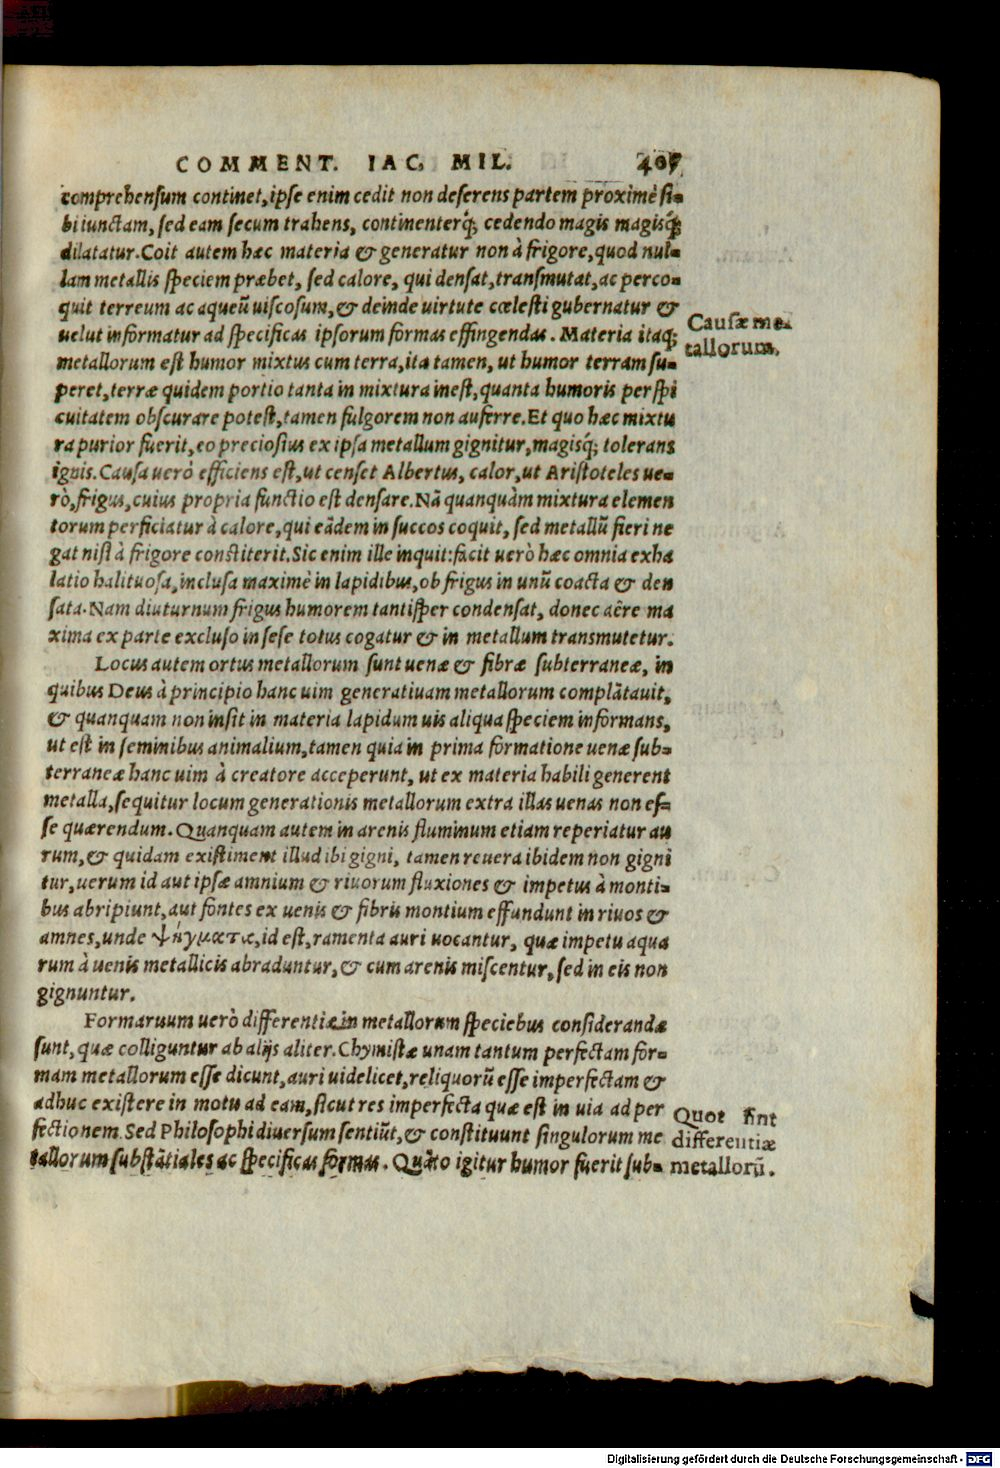 COMMENT. IAC. MIL. 407
comprehensum continet, ipse enim cedit non deserens partem proximè si-
bi iunctam, sed eam secum trahens, continenterq́; cedendo magis magisq́;
dilatatur. Coit autem hæc materia & generatur non à frigore, quod nul-
lam metallis speciem præbet, sed calore, qui densat, transmutat, ac perco-
quit terreum ac aqueũ uiscosum, & deinde uirtute cœlesti gubernatur &
uelut informatur ad specificas ipsorum formas effingendas. Materia itaq;
Causæ me-
tallorum.
metallorum est humor mixtus cum terra, ita tamen, ut humor terram su-
peret, terræ quidem portio tanta in mixtura inest, quanta humoris perspi
cuitatem obscurare potest, tamen fulgorem non auferre. Et quo hæc mixtu
ra purior fuerit, eo preciosius ex ipsa metallum gignitur, magisq́; tolerans
ignis. Causa uerò efficiens est, ut censet Albertus, calor, ut Aristoteles ue-
rò, frigus, cuius propria functio est densare. Nã quanquàm mixtura elemen
torum perficiatur à calore, qui eãdem in succos coquit, sed metallũ fieri ne
gat nisi à frigore constiterit. Sic enim ille inquit: facit uerò hæc omnia exha
latio halituosa, inclusa maximè in lapidibus, ob frigus in unũ coacta & den
sata. Nam diuturnum frigus humorem tantisper condensat, donec aëre ma
xima ex parte excluso in sese totus cogatur & in metallum transmutetur.
Locus autem ortus metallorum sunt uenæ & fibræ subterraneæ, in
quibus Deus à principio hanc uim generatiuam metallorum complãtauit,
& quanquam non insit in materia lapidum uis aliqua speciem informans,
ut est in seminibus animalium, tamen quia in prima formatione uenæ sub-
terraneæ hanc uim à creatore acceperunt, ut ex materia habili generent
metalla, sequitur locum generationis metallorum extra illas uenas non es-
se quærendum. Quanquam autem in arenis fluminum etiam reperiatur au
rum, & quidam existiment illud ibi gigni, tamen reuera ibidem non gigni
tur, uerum id aut ipsæ amnium & riuorum fluxiones & impetus à monti-
bus abripiunt, aut fontes ex uenis & fibris montium effundunt in riuos &
amnes, unde ψήγματα, id est, ramenta auri uocantur, quæ impetu aqua
rum à uenis metallicis abraduntur, & cum arenis miscentur, sed in eis non
gignuntur.
Formaruum uerò differentiæ in metallorum speciebus considerandæ
sunt, quæ colliguntur ab alijs aliter. Chymistæ unam tantum perfectam for-
mam metallorum esse dicunt, auri uidelicet, reliquorũ esse imperfectam &
adhuc existere in motu ad eam, sicut res imperfecta quæ est in uia ad per
fectionem. Sed Philosophi diuersum sentiũt, & constituunt singulorum me
tallorum substãtiales ac specificas formas. Quãto igitur humor fuerit sub-
Quot sint
differentiæ
metallorũ.
Digitalisierung gefördert durch die Deutsche Forschungsgemeinschaft - DFG